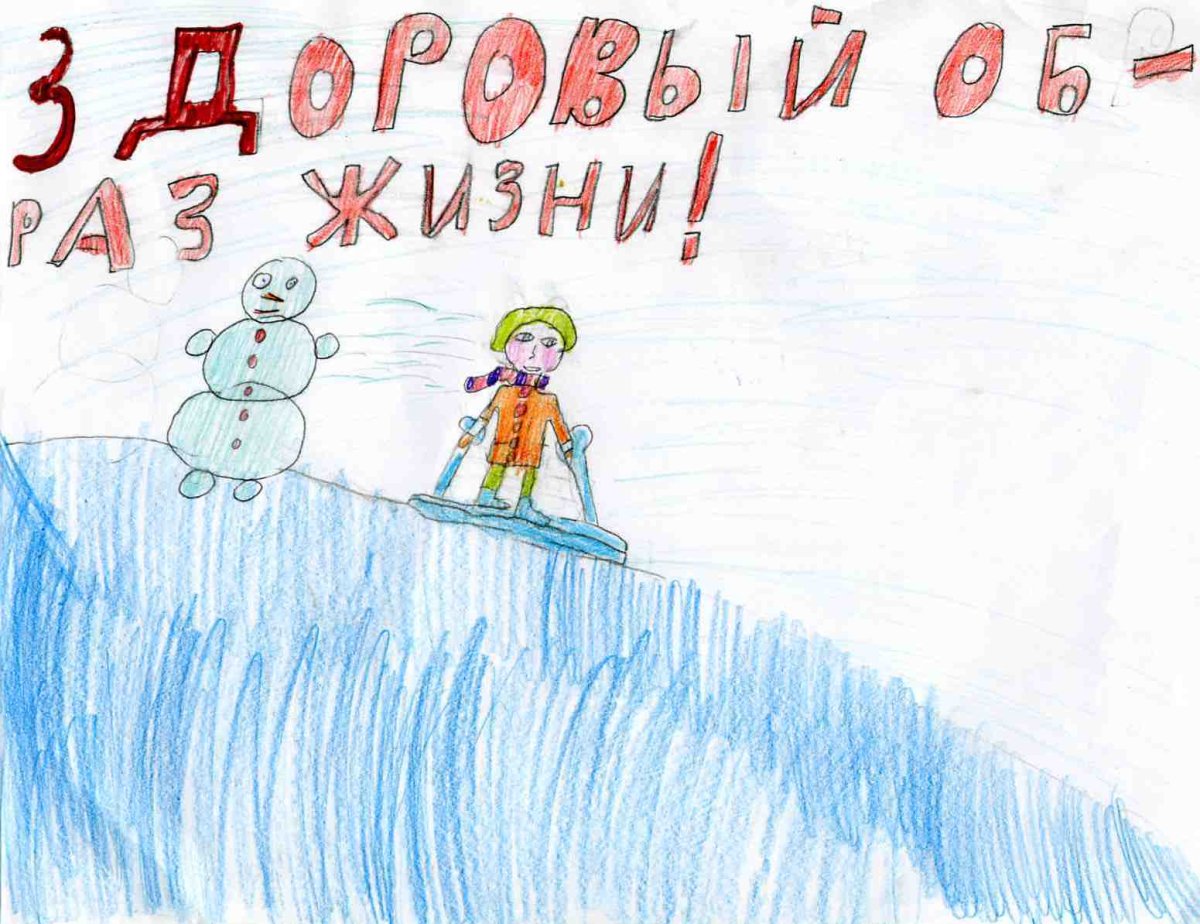 ЗДОРОВЫЙ ОБ-
РАЗ ЖИЗНИ!